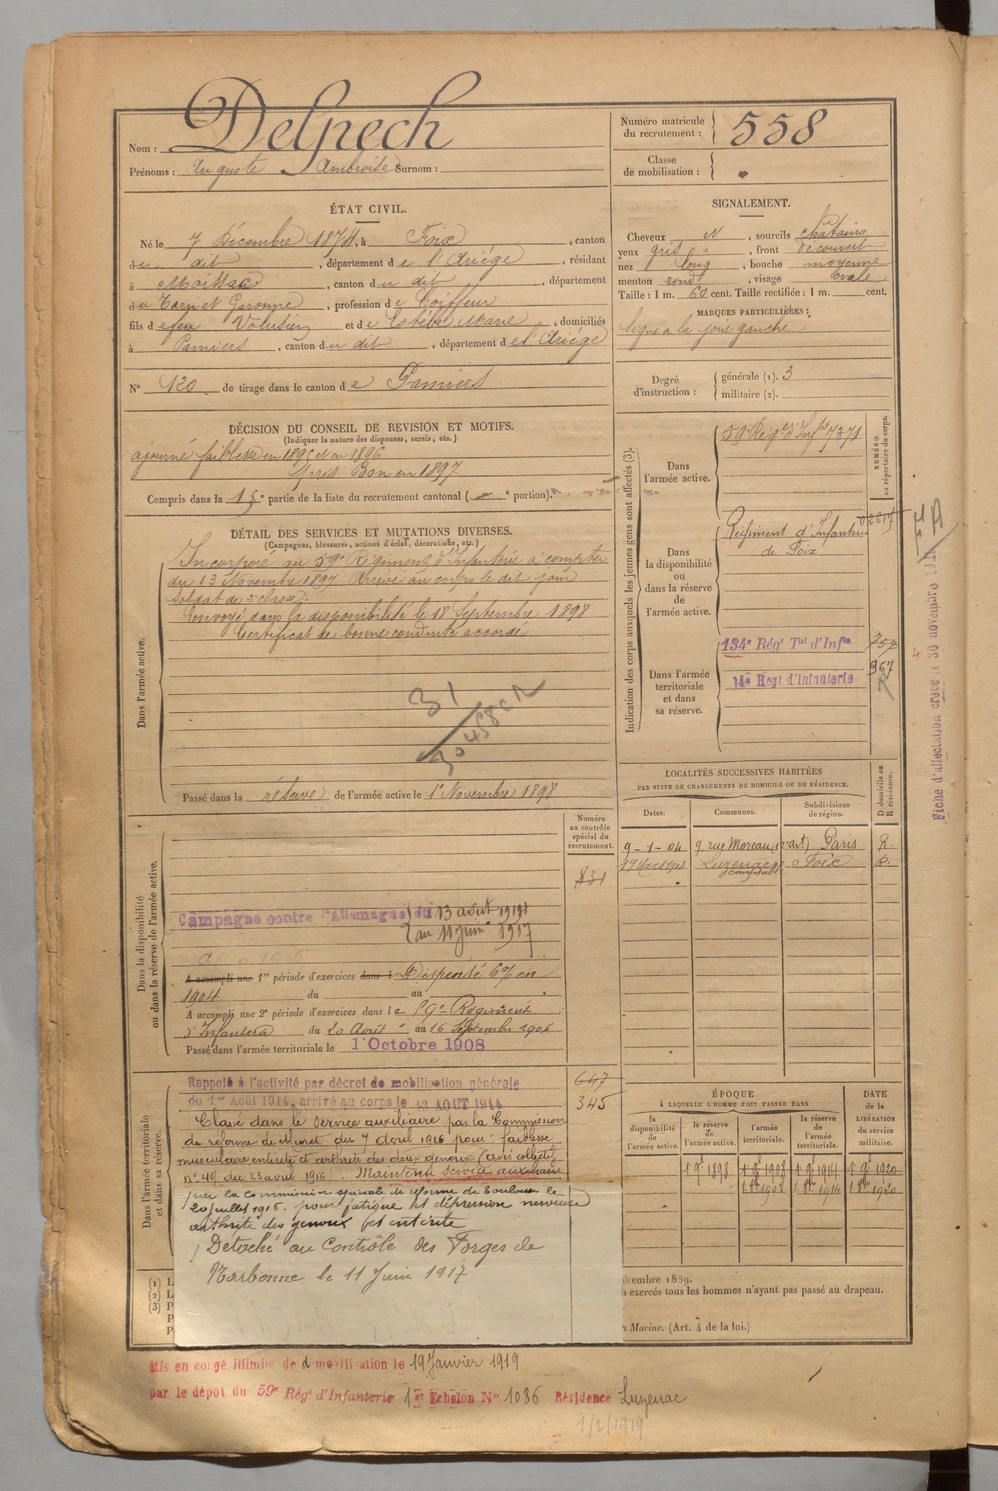 Nom : Delpech
Prénoms : Auguste Ambroise Surnom :
Numéro matricule du recrutement : 558
Classe de mobilisation :
ÉTAT CIVIL.
Né le 7 Décembre 1874, à Foix, canton
du dit, département de l'Ariège, résidant
à Moissac, canton du dit, département
du Tarn et Garonne, profession de Coiffeur
fils de feu Volusien et de Estèbe Marie, domiciliés
à Pamiers, canton du dit, département de l'Ariège
No 120 de tirage dans le canton de Pamiers
SIGNALEMENT.
Cheveux N, sourcils châtains
yeux gris, front découvert
nez long, bouche moyenne
menton rond, visage ovale
Taille : 1 m. 60 cent. Taille rectifiée : 1 m. cent.
MARQUES PARTICULIÈRES :
Signe à la joue gauche
Degré d'instruction : générale (1). 3
militaire (2).
DÉCISION DU CONSEIL DE REVISION ET MOTIFS.
(Indiquer la nature des dispenses, sursis, etc.)
ajourné faiblesse en 1895 et en 1896
Bon en 1897
Compris dans la 1e partie de la liste du recrutement cantonal ( — e portion).
DÉTAIL DES SERVICES ET MUTATIONS DIVERSES.
(Campagnes, blessures, actions d'éclat, décorations, etc.)
Dans l'armée active.
Incorporé au 59e Régiment d'Infanterie à compter
du 13 Novembre 1897 Arrivé au corps le dit jour
Soldat de 2e classe.
Envoyé dans la disponibilité le 18 Septembre 1898
Certificat de bonne conduite accordé
31
Passé dans la réserve de l'armée active le 1er Novembre 1898
Indication des corps auxquels les jeunes gens sont affectés (3).
NUMÉRO au répertoire du corps.
Dans l'armée active.
59 Régt d'Infie 7371
Dans la disponibilité ou dans la réserve de l'armée active.
Régiment d'Infanterie
de Foix
Dans l'armée territoriale et dans sa réserve.
134e Régt Tal d'Infie 757
14e Régt d'Infanterie 367
R
A
Fiche d'affectation
LOCALITÉS SUCCESSIVES HABITÉES
PAR SUITE DE CHANGEMENTS DE DOMICILE OU DE RÉSIDENCE.
Dates. Communes. Subdivisions de région. D domicile ou R résidence.
9-1-04 9, rue Moreau Paris R.
Luzenac Foix R.
Numéro au contrôle spécial du recrutement.
Dans la disponibilité ou dans la réserve de l'armée active.
Campagne contre l'Allemagne du 13 août 1914
au 11 Juin 1917
A accompli une 1re période d'exercices dans l Dispensé en
1904 du au
A accompli une 2e période d'exercices dans le Régiment
d'Infanterie du 20 Août au 16 Septembre 1906
Passé dans l'armée territoriale le 1 Octobre 1908
Dans l'armée territoriale et dans sa réserve.
Rappelé à l'activité par décret de mobilisation générale 647
du 1er Août 1914, arrivé au corps le AOUT 1914 345
Classé dans le service auxiliaire par la Commission
de réforme de Muret du 7 avril 1916 pour faiblesse
musculaire entérite et arthrite des deux genoux (avis collectif
no 49 du 23 avril 1916. Maintenu service auxiliaire
par la commission spéciale de réforme de Toulouse le
20 juillet 1916. pour fatigue et dépression nerveuse
arthrite des genoux et entérite
Détaché au Contrôle des Forges de
Narbonne le 11 Juin 1917
ÉPOQUE
À LAQUELLE L'HOMME DOIT PASSER DANS
DATE de la LIBÉRATION du service militaire.
la disponibilité de l'armée active. la réserve de l'armée active. l'armée territoriale. la réserve de l'armée territoriale.
1 9e 1898 1 9e 1908 1 9e 1914 1 9e 1920
(1) L
(2) L
(3) P
P
P
écembre 1889.
n exercés tous les hommes n'ayant pas passé au drapeau.
Marine. (Art. 4 de la loi.)
Mis en congé illimité de démobilisation le 19 Janvier 1919
par le dépôt du 59e Régt d'Infanterie 1er Echelon No 1086 Résidence Luzenac
1/2/1919